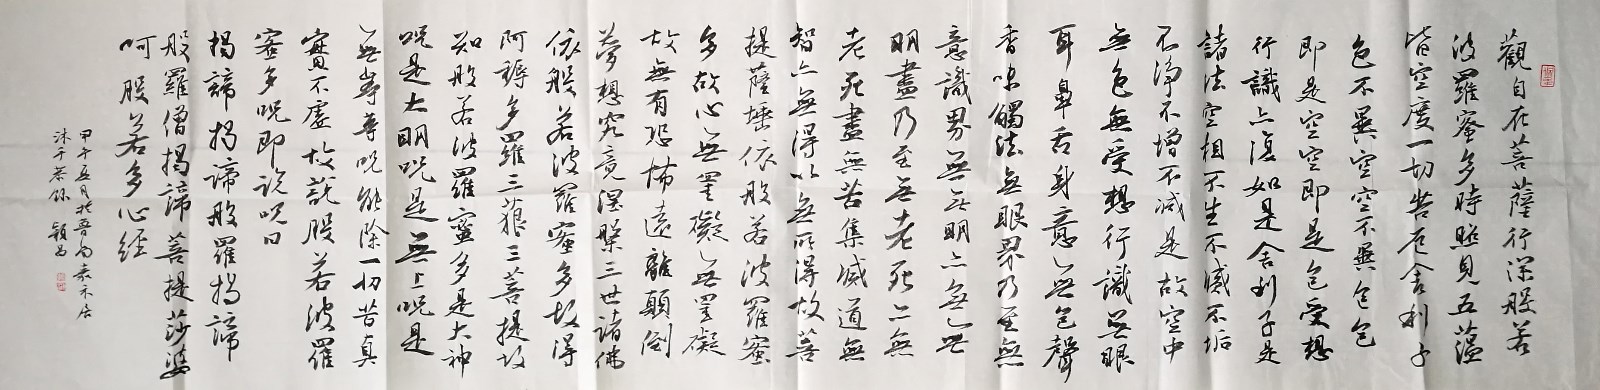 觀自在菩薩行深般若
波羅蜜多時照見五蘊
皆空度一切苦厄舍利子
色不異空空不異色色
即是空空即是色受想
行識亦復如是舍利子是
諸法空相不生不滅不垢
不淨不增不减是故空中
無色無受想行識無眼
耳鼻舌身意無色聲
香味觸法無眼界乃至無
意識界無無明亦無無
明盡乃至無老死亦無
老死盡無苦集滅道無
智亦無得以無所得故菩
提薩埵依般若波羅蜜
多故心無罣礙無罣礙
故無有恐怖遠離顛倒
夢想究竟涅槃三世諸佛
依般若波羅蜜多故得
阿耨多羅三藐三菩提故
知般若波羅蜜多是大神
咒是大明咒是無上咒是
無等等咒能除一切苦真
實不虛故說般若波羅
蜜多咒即說咒曰
揭諦揭諦般羅揭諦
般羅僧揭諦菩提莎婆
呵般若多心經
甲午五月於
沐手恭錄